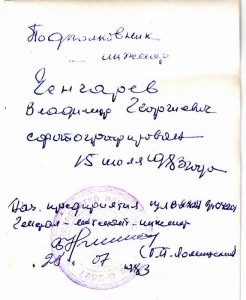 Подполковник
инженер
Ченгарев
Владимир Георгиевич
сфотографирован
15 июля 1983 года
Нач. предприятия
Генерал-лейтенант-инженер
28 07 1983